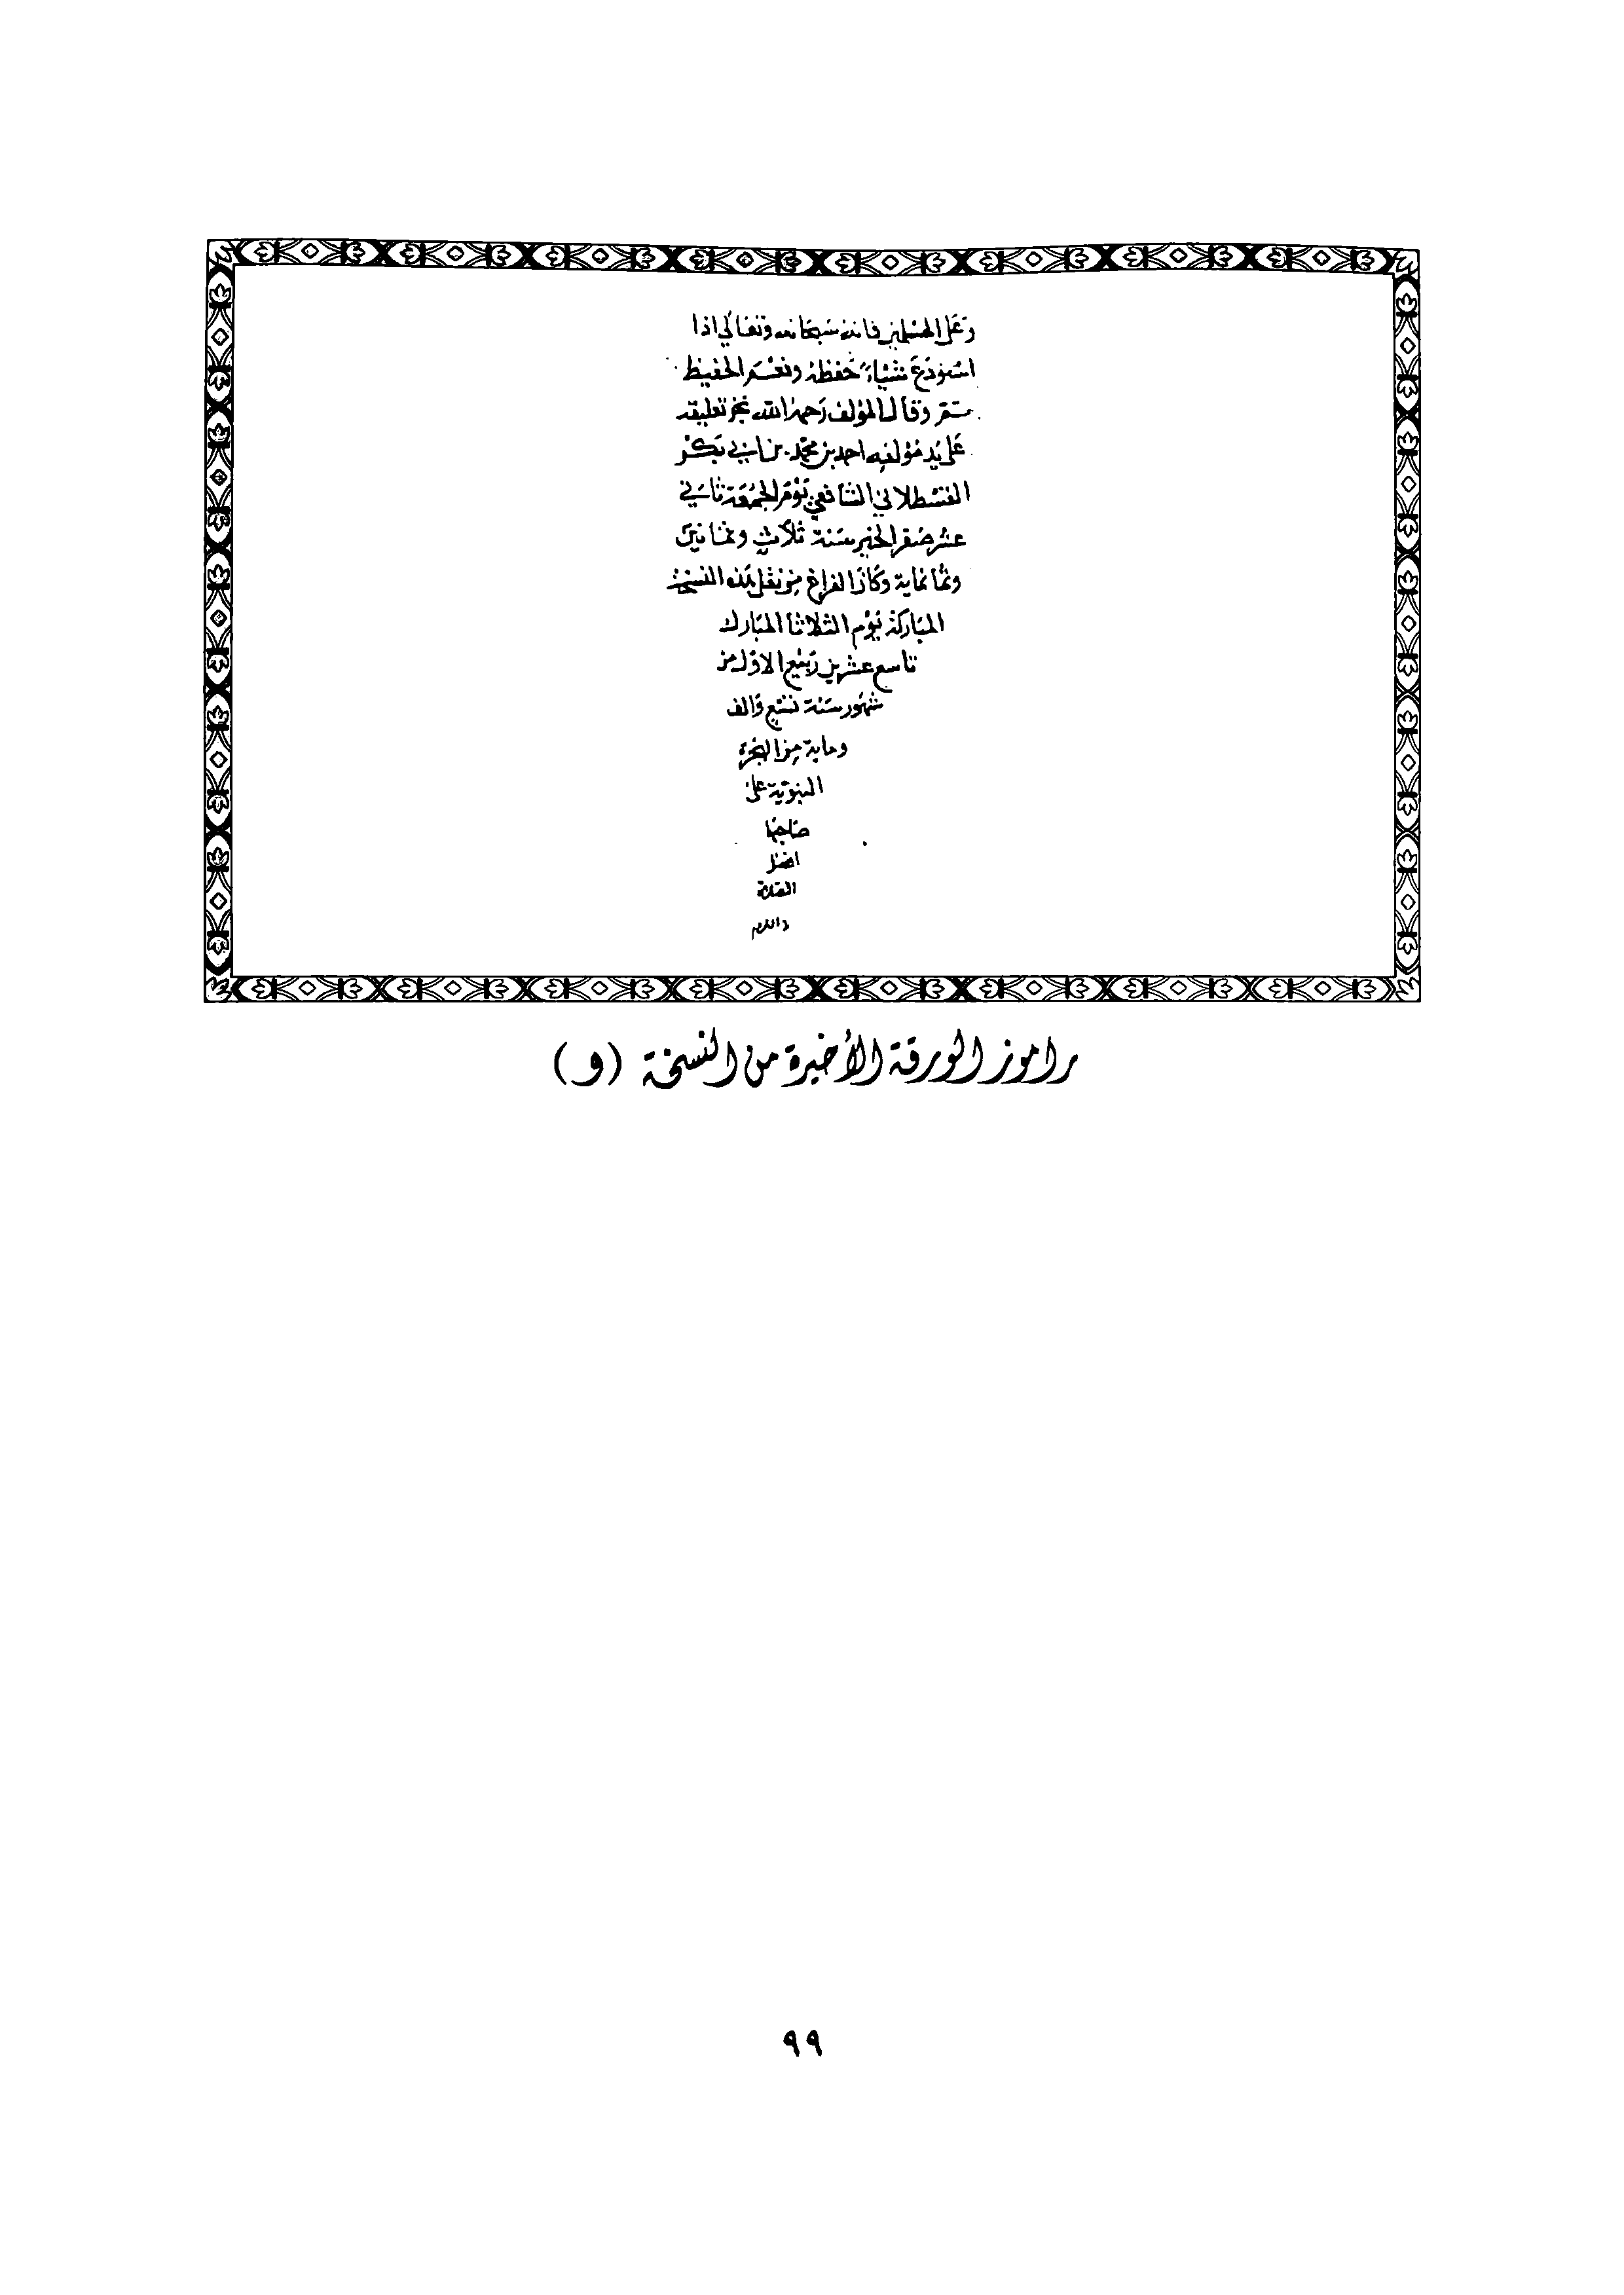 وعلى المسلمين فانه سبحانه وتعالى اذا
استودع شيئا حفظه ونعم الحفيظ
تم وقال المؤلف رحمه الله نجز تعليقه
على يد مؤلفه احمد بن محمد بن ابي بكر
القسطلاني الشافعي يوم الجمعة ثاني
عشر صفر الخير سنة ثلاث وثمانين
وثمانماية وكان الفراغ من نقل هذه النسخة
المباركة يوم الثلاثا المبارك
تاسع عشرين ربيع الاول من
شهور سنة تسع والف
وماية من الهجرة
النبوية على
صاحبها
افضل
الصلاة
والسلام
راموز الورقة الأخيرة من النسخة (و)
٩٩